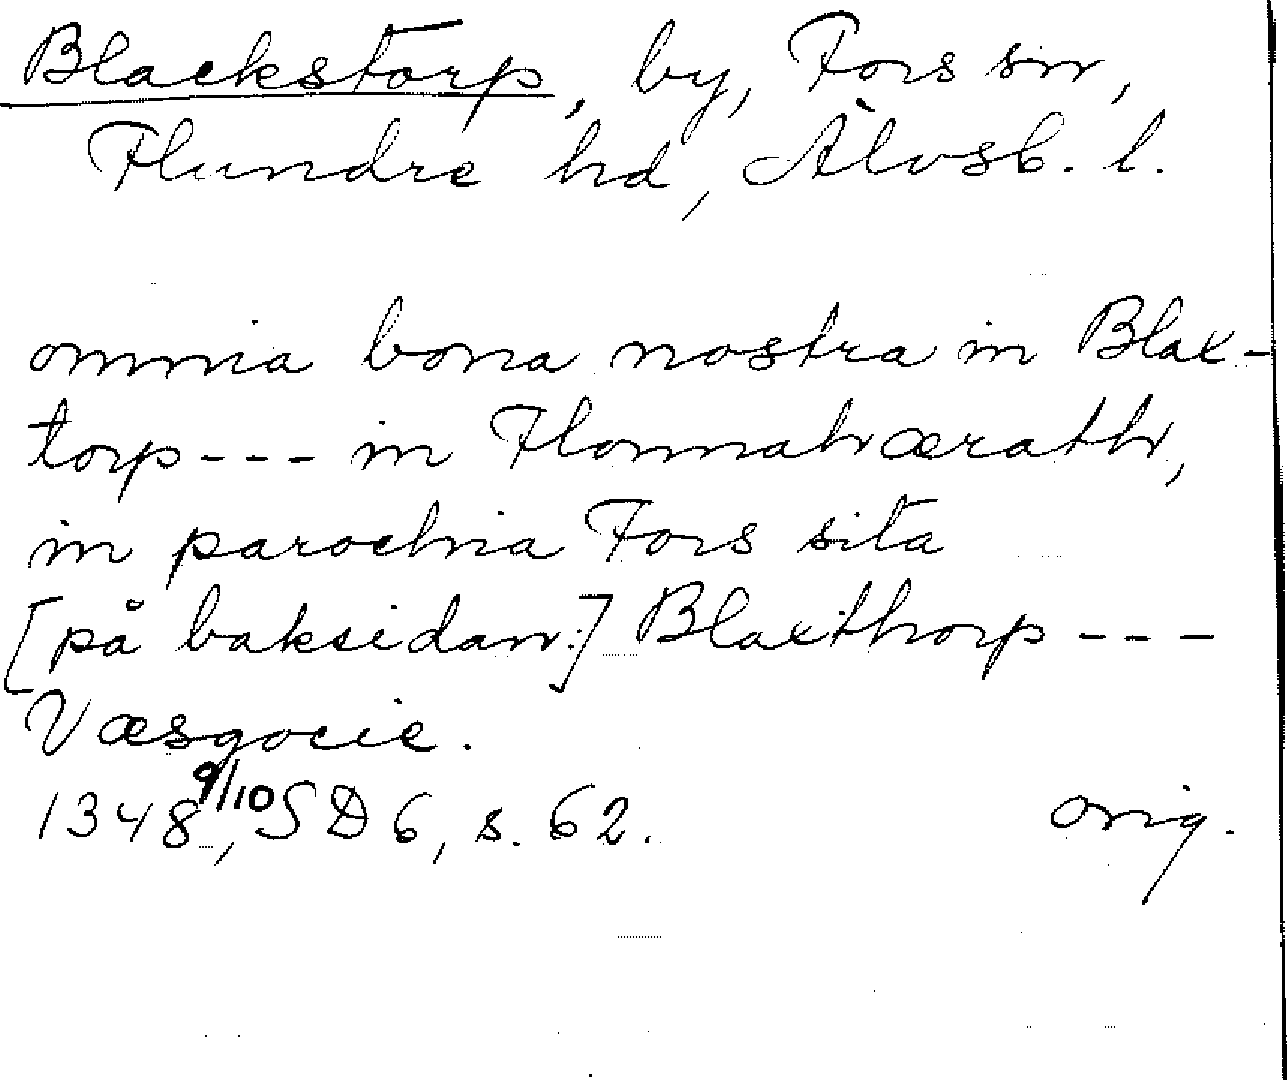 Blackstorp, by, Fors sn,
Flundre hd, Älvsb. l.
omnia bona nostra in Blax-
torp --- in Flonnahæerath,
in parochia Fors sita
[på baksidan:] Blaxthorp ---
Væsgocie.
1348 9/10, SD 6, s. 62. orig.